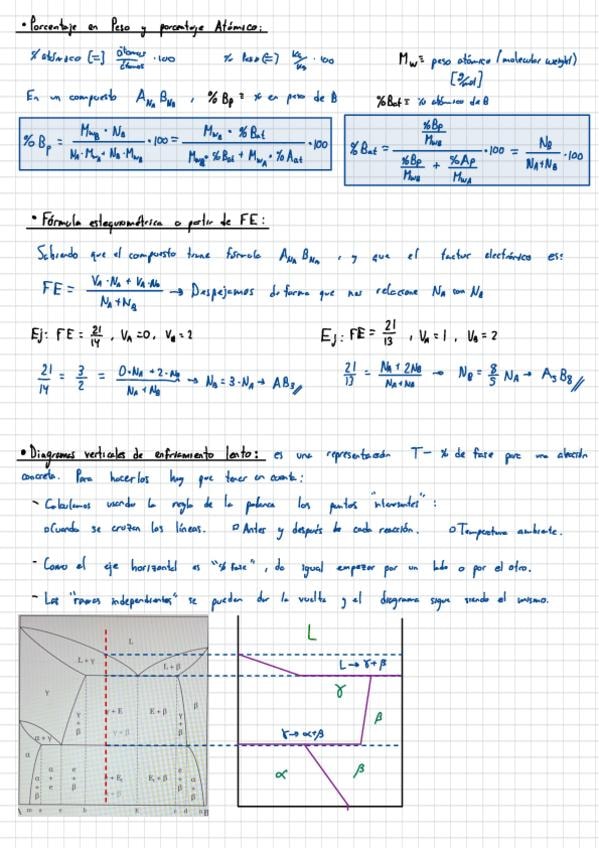 • Porcentaje en Peso y porcentaje Atómico:
% atómico [=] átomos/átomos · 100   % Peso [=] Kg/Kg · 100   Mw ≡ peso atómico (molecular weight)
[g/mol]
En un compuesto A_NA B_NB , %Bp ≡ % en peso de B   %Bat ≡ % atómico de B
%Bp = (MwB · NB)/(NA · MwA + NB · MwB) · 100 = (MwB · %Bat)/(MwB · %Bat + MwA · %Aat) · 100
%Bat = (%Bp/MwB)/(%Bp/MwB + %Ap/MwA) · 100 = NB/(NA+NB) · 100
• Fórmula estequiométrica a partir de FE:
Sabiendo que el compuesto tiene fórmula A_NA B_NB , y que el factor electrónico es:
FE = (VA · NA + VA · NB)/(NA + NB) → Despejamos de forma que nos relacione NA con NB
Ej: FE = 21/14 , VA = 0, VB = 2   Ej: FE = 21/13 , VA = 1 , VB = 2
21/14 = 3/2 = (0 · NA + 2 · NB)/(NA + NB) → NB = 3 · NA → AB3   21/13 = (NA + 2NB)/(NA + NB) → NB = 8/5 NA → A5B8
• Diagramas verticales de enfriamiento lento: es una representación T - % de fase para una aleación
concreta. Para hacerlos hay que tener en cuenta:
- Calculamos usando la regla de la palanca los puntos "interesantes":
o Cuando se cruzan las líneas.   o Antes y después de cada reacción.   o Temperatura ambiente.
- Como el eje horizontal es "% Fase", da igual empezar por un lado o por el otro.
- Las "ramas independientes" se pueden dar la vuelta y el diagrama sigue siendo el mismo.
L
L
L + γ
L + β
L → γ + β
γ
γ
γ + E
E + β
γ + β
β
β
γ + β
α + γ
γ → α + β
α
α + β
α + e
e + β
+ E
E + β
α + β
α
β